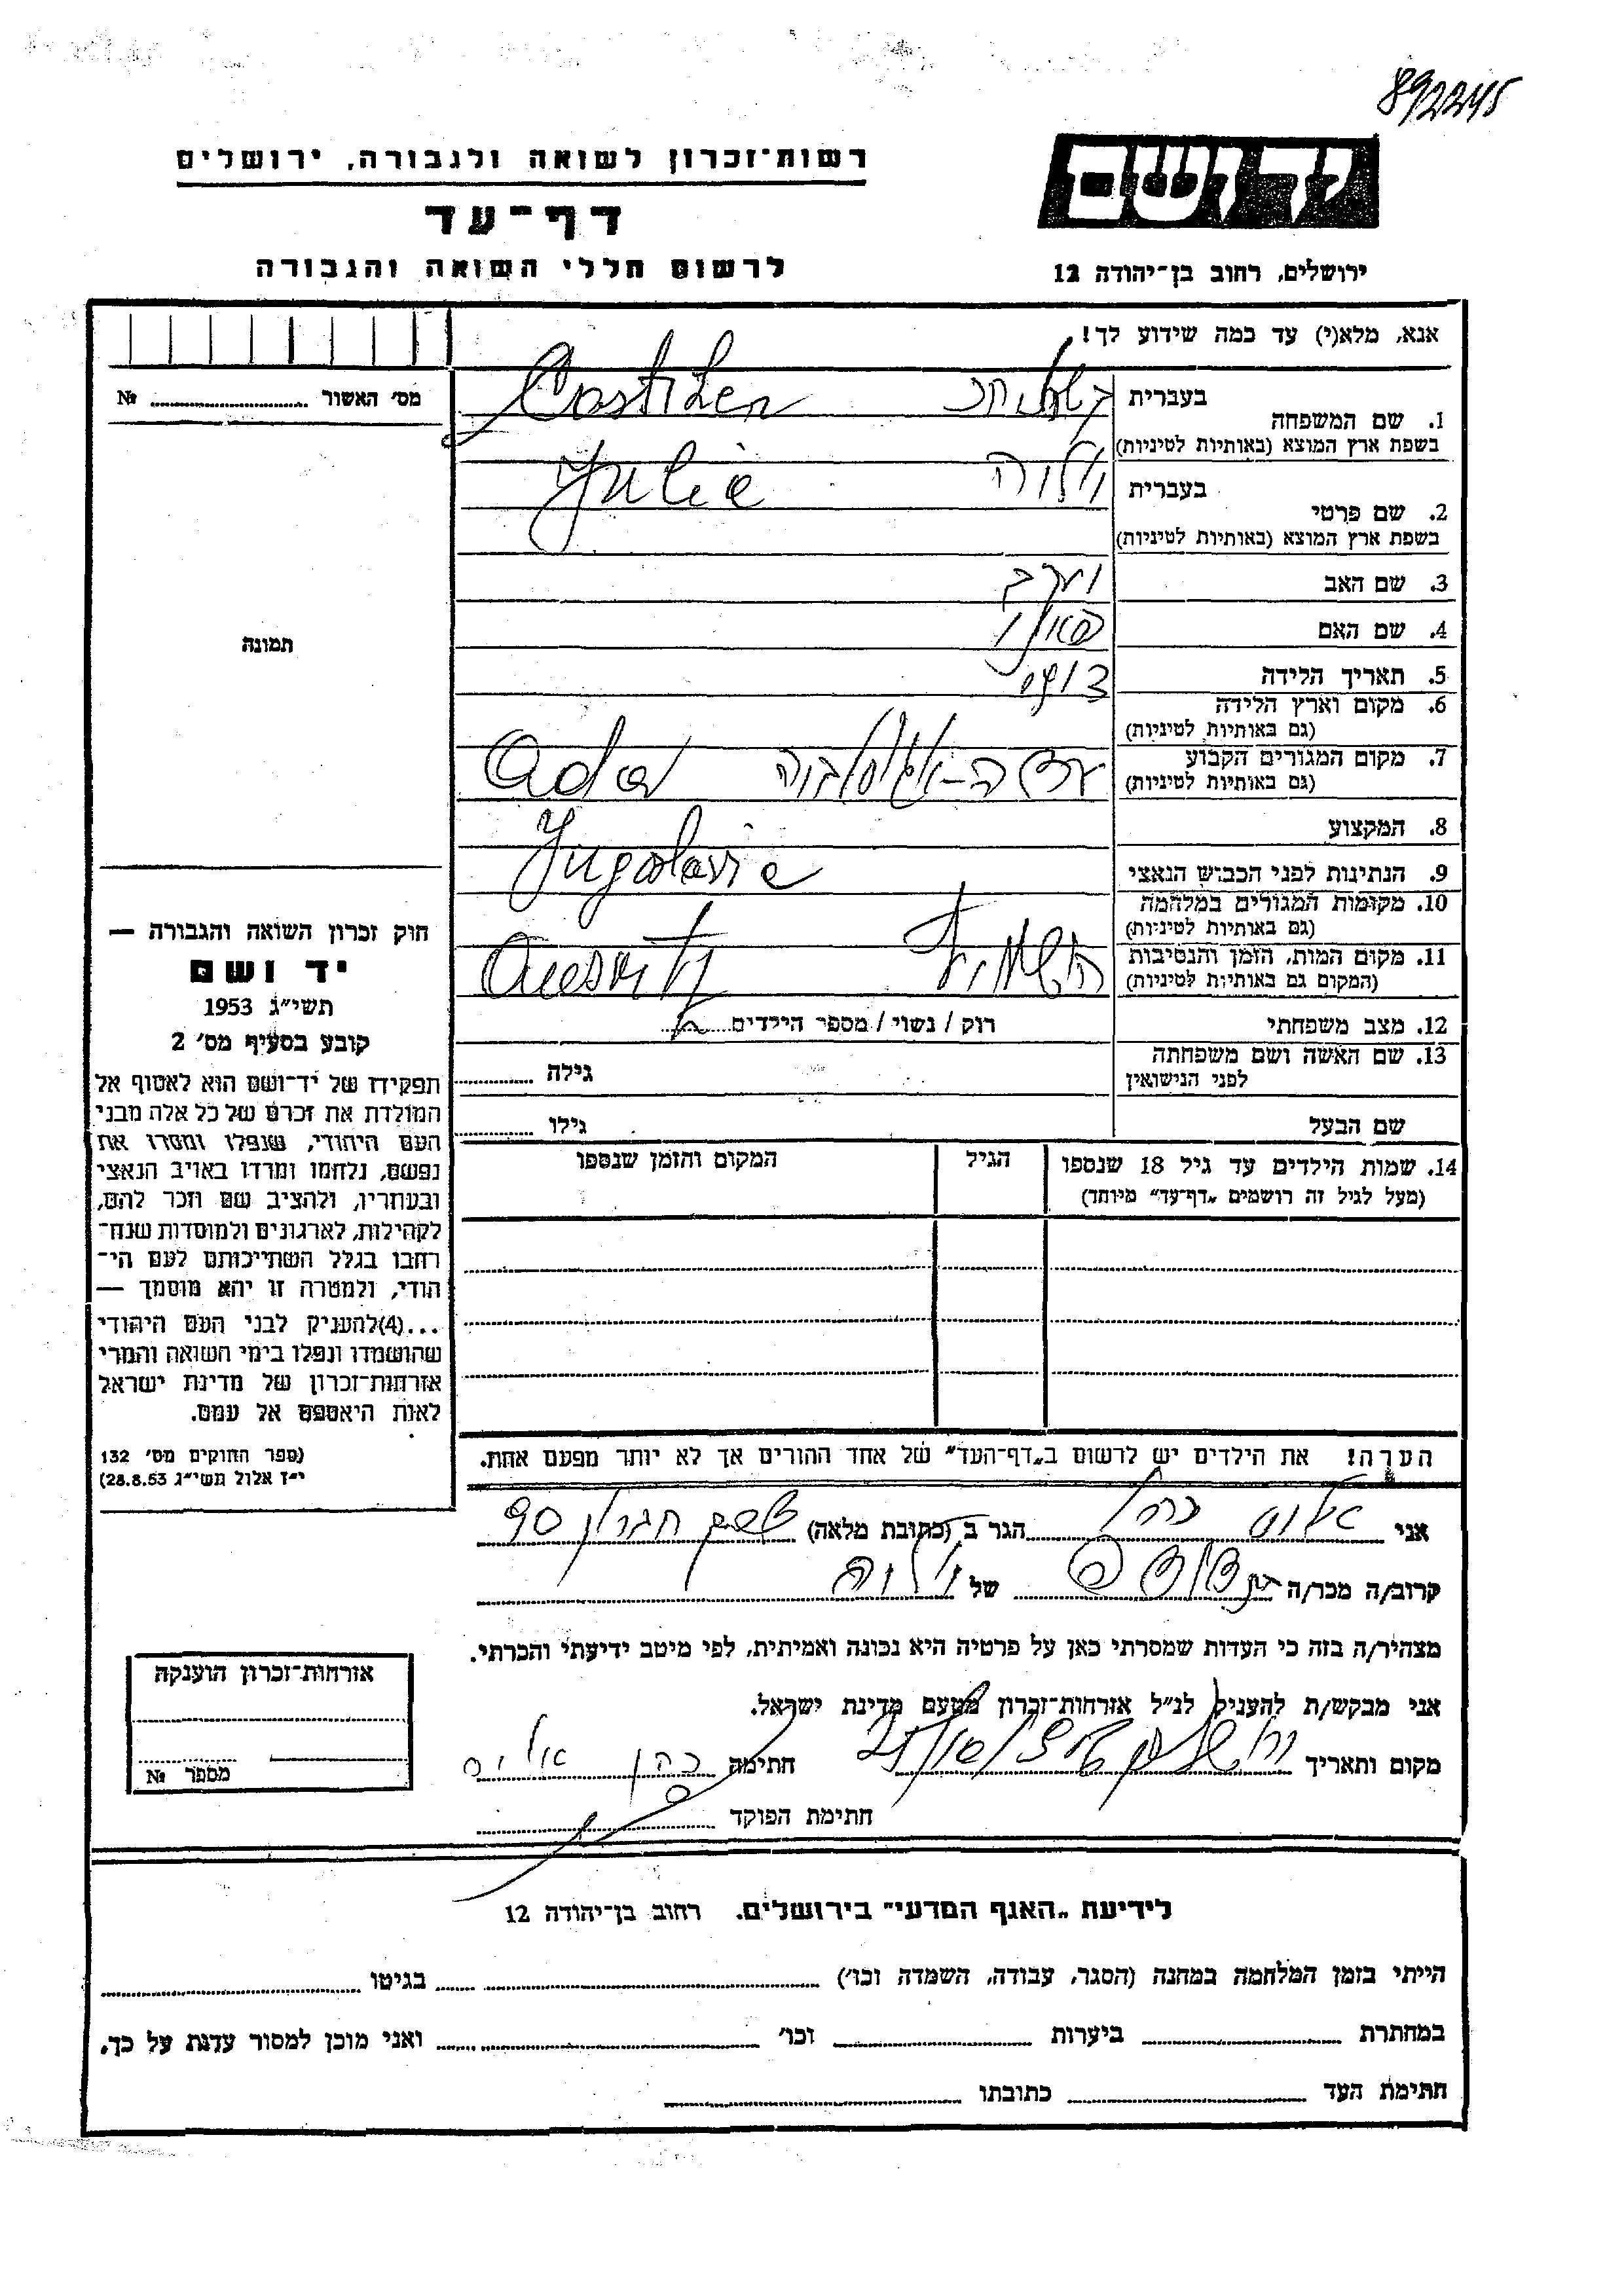 892245
רשות־זכרון לשואה ולגבורה, ירושלים
יד ושם
דף־עד
לרשום חללי השואה והגבורה
ירושלים, רחוב בן־יהודה 12
אנא, מלא(י) עד כמה שידוע לך!
מס׳ האשור № 
בעברית
1. שם המשפחה
בשפת ארץ המוצא (באותיות לטיניות)
בעברית
Julia
2. שם פרטי
בשפת ארץ המוצא (באותיות לטיניות)
3. שם האב
4. שם האם
תמונה
5. תאריך הלידה
6. מקום וארץ הלידה
(גם באותיות לטיניות)
7. מקום המגורים הקבוע Ada
(גם באותיות לטיניות)
8. המקצוע
9. הנתינות לפני הכבוש הנאצי
10. מקומות המגורים במלחמה
(גם באותיות לטיניות)
11. מקום המות, הזמן והנסיבות
(המקום גם באותיות לטיניות)
12. מצב משפחתי רוק / נשוי / מספר הילדים
13. שם האשה ושם משפחתה גילה
לפני הנישואין
שם הבעל גילו
14. שמות הילדים עד גיל 18 שנספו הגיל המקום והזמן שנספו
(מעל לגיל זה רושמים „דף־עד״ מיוחד)
חוק זכרון השואה והגבורה —
יד ושם
תשי״ג 1953
קובע בסעיף מס׳ 2
תפקידו של יד־ושם הוא לאסוף אל
המולדת את זכרם של כל אלה מבני
העם היהודי, שנפלו ומסרו את
נפשם, נלחמו ומרדו באויב הנאצי
ובעוזריו, ולהציב שם וזכר להם,
לקהילות, לארגונים ולמוסדות שנח־
רחבו בגלל השתייכותם לעם הי־
הודי, ולמטרה זו יהא מוסמך —
...(4)להעניק לבני העם היהודי
שהושמדו ונפלו בימי השואה והמרי
אזרחות־זכרון של מדינת ישראל
לאות היאספם אל עמם.
(ספר החוקים מס׳ 132
י״ז אלול תשי״ג 28.8.53)
הערה! את הילדים יש לרשום ב„דף־העד״ של אחד ההורים אך לא יותר מפעם אחת.
אני הגר ב (כתובת מלאה) 90
קרוב/ה מכר/ה של יוליה
מצהיר/ה בזה כי העדות שמסרתי כאן על פרטיה היא נכונה ואמיתית, לפי מיטב ידיעתי והכרתי.
אני מבקש/ת להעניק לנ״ל אזרחות־זכרון מטעם מדינת ישראל.
מקום ותאריך חתימה כהן
חתימת הפוקד
אזרחות־זכרון הוענקה
מספר №
לידיעת „האגף המדעי״ בירושלים. רחוב בן־יהודה 12
הייתי בזמן המלחמה במחנה (הסגר, עבודה, השמדה וכו׳) בגיטו
במחתרת ביערות וכו׳ ואני מוכן למסור עדות על כך.
חתימת העד כתובתו